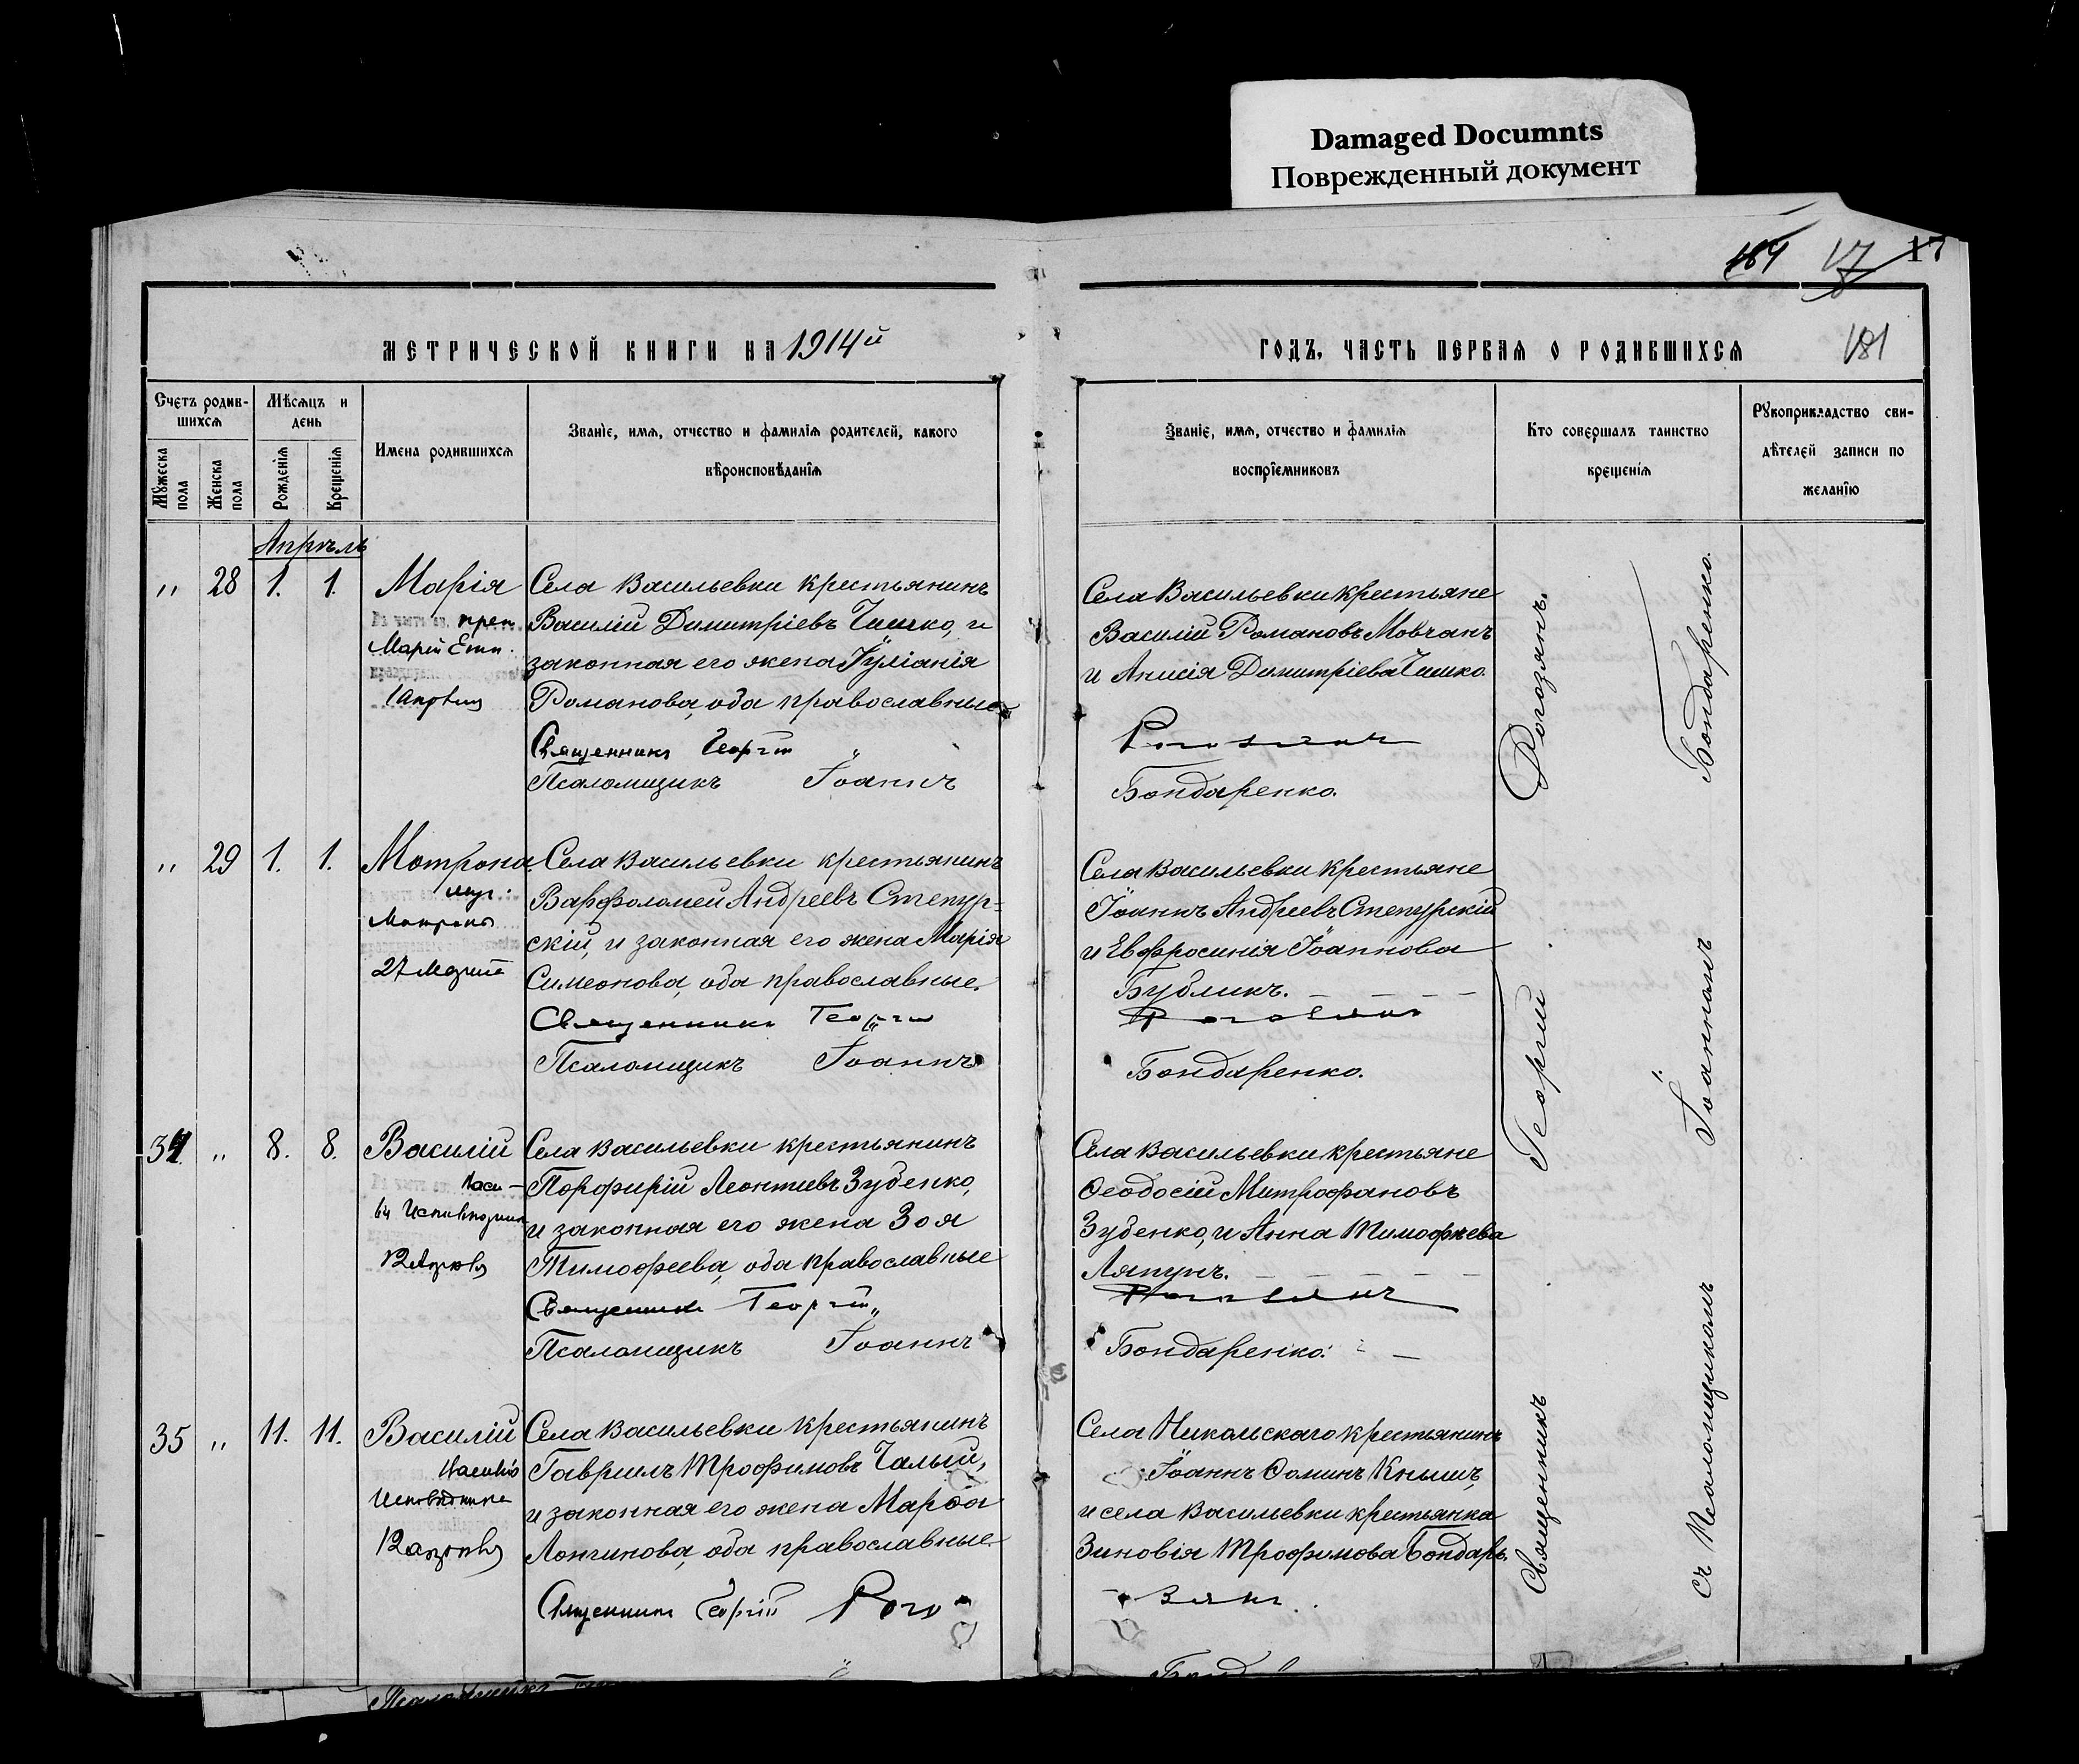 Damaged Documnts
Поврежденный документ
164 17 17
МЕТРИЧЕСКОЙ КНИГИ НА 1914й
Счетъ родив-
шихся
Мѣсяцъ и
день
Мужеска
пола
Женска
пола
Рожденія
Крещенія
Имена родившихся
Званіе, имя, отчество и фамилія родителей, какого
вѣроисповѣданія
Апрѣль
" 28 1. 1. Марія
Марій Егип.
1 Апрѣля
Села Васильевки крестьянинъ
Василій Димитріевъ Чишко, и
законная его жена Іуліанія
Романова, оба православные
Священникъ Георгій
Псаломщикъ Іоаннъ
" 29 1. 1. Мотрона
муч:
Матроны
27 Марта
Села Васильевки крестьянинъ
Варфоломей Андреевъ Степур-
скій, и законная его жена Марія
Симеонова, оба православные.
Священникъ Георгій
Псаломщикъ Іоаннъ
34 " 8. 8. Василій
Васи-
12 Апрѣля
Села Васильевки крестьянинъ
Порфирій Леонтіевъ Зубенко,
и законная его жена Зоя
Тимофеева, оба православные
Священникъ Георгій
Псаломщикъ Іоаннъ
35 " 11. 11. Василій
Василія
Исповѣдника
12 апрѣля
Села Васильевки крестьянинъ
Гавриилъ Трофимовъ Чалый,
и законная его жена Марѳа
Лонгинова, оба православные.
Священникъ Георгій Рого
ГОДЪ, ЧАСТЬ ПЕРВАЯ О РОДИВШИХСЯ
181
Званіе, имя, отчество и фамилія
воспріемниковъ
Кто совершалъ таинство
крещенія
Рукоприкладство сви-
дѣтелей записи по
желанію
Села Васильевки крестьяне
Василій Романовъ Мовчанъ
и Анисія Димитріева Чишко.
Рогозянъ
Бондаренко.
Села Васильевки крестьяне
Іоаннъ Андреевъ Степурскій
и Евфросинія Іоаннова
Бубликъ.
Рогозянъ
Бондаренко.
Села Васильевки крестьяне
Ѳеодосій Митрофановъ
Зубенко, и Анна Тимофѣева
Ляпунъ.
Рогозянъ
Бондаренко.
Села Никольскаго крестьянинъ
Іоаннъ Ѳоминъ Кнышъ,
и села Васильевки крестьянка
Зиновія Трофимова Бондарь.
зянъ.
Священникъ Георгій Рогозянъ.
съ Псаломщикомъ Іоанномъ Бондаренко.